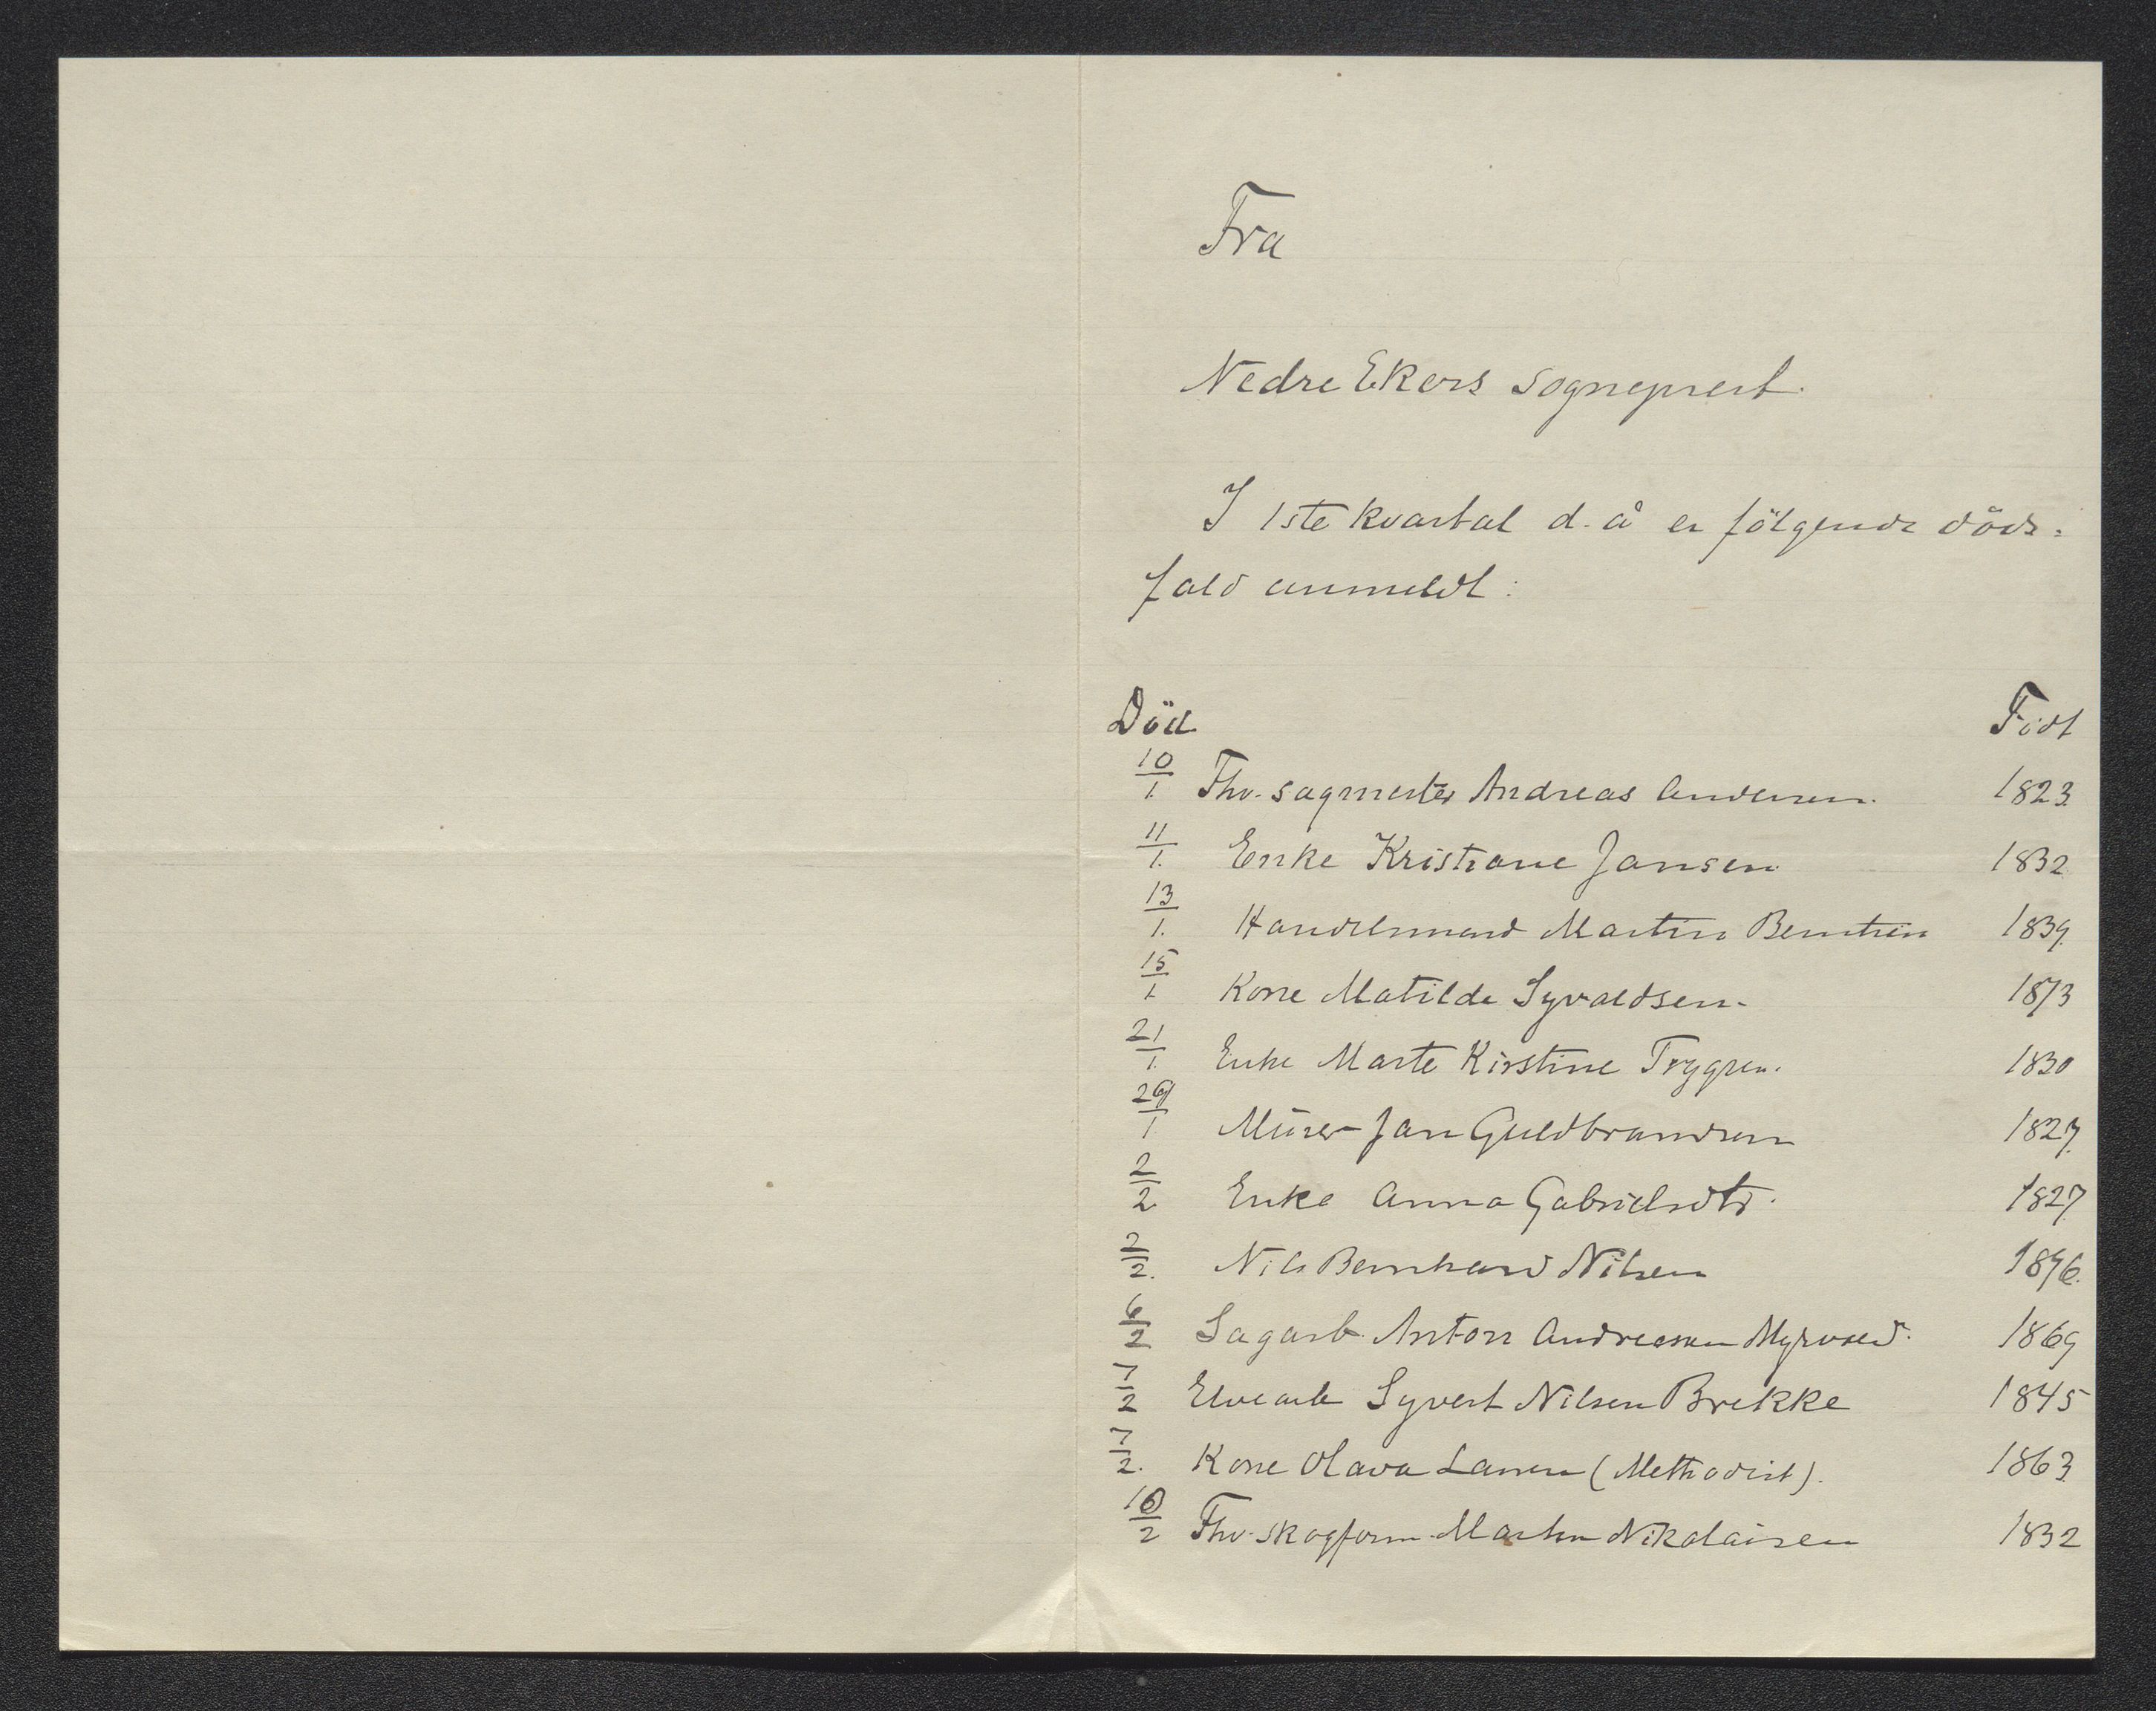 Fra
Nedre Ekers sogneprest.
I 1ste kvartal d. å er følgende døds=
fald anmeldt:
Död Födt
10/1. Fhv. sagmester Andreas Andersen. 1823.
11/1. Enke Kristiane Jansen 1832
13/1. Handelsmand Martin Berntsen 1839.
15/1. Kone Matilde Syvaldsen. 1873
21/1. Enke Marte Kirstine Trygsen. 1830
29/1 Murer Jan Guldbrandsen 1827.
2/2 Enke Anna Gabrielsdtr. 1827.
2/2. Nils Bernhard Nilsen 1896.
6/2 Sagarb. Anton Andreassen 1869
7/2 Elvearb Syvert Nilsen Brekke 1845
7/2. Kone Olava Larsen (Methodist). 1863.
10/2 Fhv. skogform. Martin Nikolaisen 1832